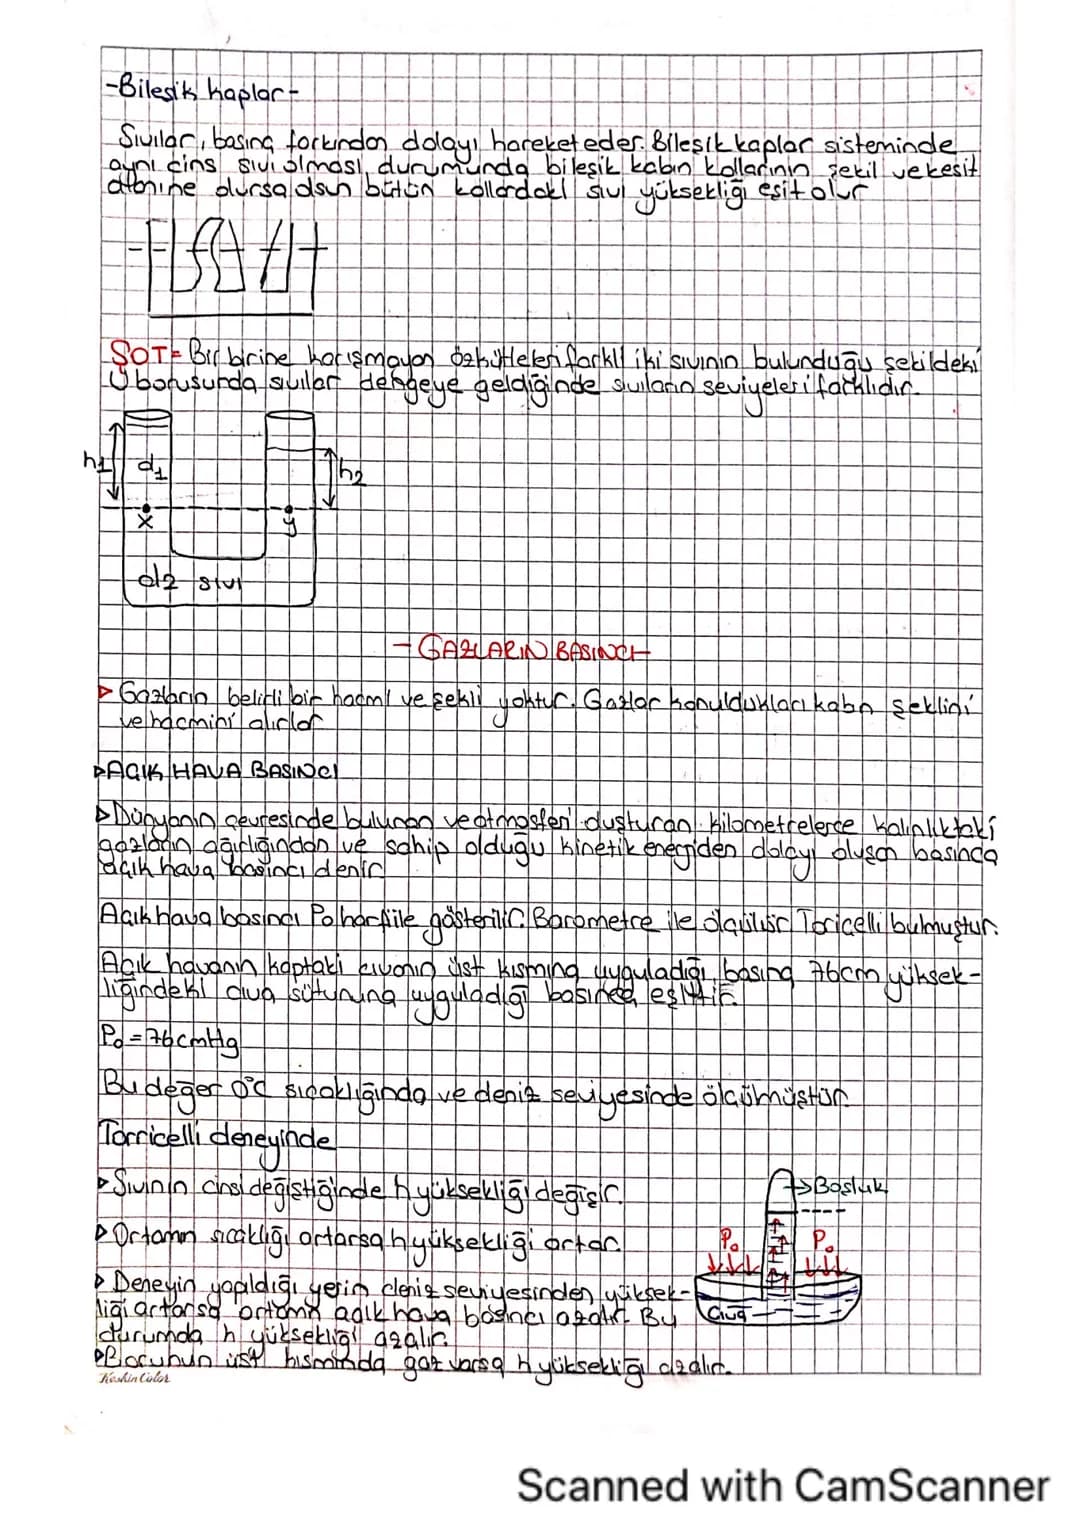 -Bileşik kaplar-
Sıvılar, basınç farkından dolayı hareket eder. Bileşik kaplar sisteminde
aynı cins sıvı olması durumunda bileşik kabın kollarının şekil ve kesit
olursa olsun bütün kollardaki sıvı yüksekliği eşit olur
ŞOT= Bir birine karışmayan özkütleleri farklı iki sıvının bulunduğu şekildeki
U borusunda sıvılar dengeye geldiğinde sıvıların seviyeleri farklıdır.
h1 d1 h2
x y
d2 sıvı
- GAZLARIN BASINCI
Gazların belirli bir hacmi ve şekli yoktur. Gazlar konuldukları kabın şeklini
ve hacmini alırlar
AÇIK HAVA BASINCI
Dünyanın çevresinde bulunan ve atmosferi oluşturan kilometrelerce kalınlıktaki
gazların ağırlığından ve sahip olduğu kinetik enerjiden dolayı oluşan basınca
açık hava basıncı denir
Açık hava basıncı Po harfi ile gösterilir. Barometre ile ölçülür Toricelli bulmuştur.
Açık havanın kaptaki cıvanın üst kısmına uyguladığı basınç 76cm yüksek-
liğindeki cıva sütununa uyguladığı basınca eşittir.
Po = 76cmHg
Bu değer 0°C sıcaklığında ve deniz seviyesinde ölçülmüştür
Torricelli deneyinde
Sıvının cinsi değiştiğinde h yüksekliği değişir.
Ortamın sıcaklığı artarsa h yüksekliği artar.
Deneyin yapıldığı yerin deniz seviyesinden yüksek-
liği artarsa ortamın açık hava basıncı azalır. Bu
durumda h yüksekliği azalır.
Borunun üst kısmında gaz varsa h yüksekliği azalır.
Boşluk
Po Po
Cıva
KeskinColor
Scanned with CamScanner